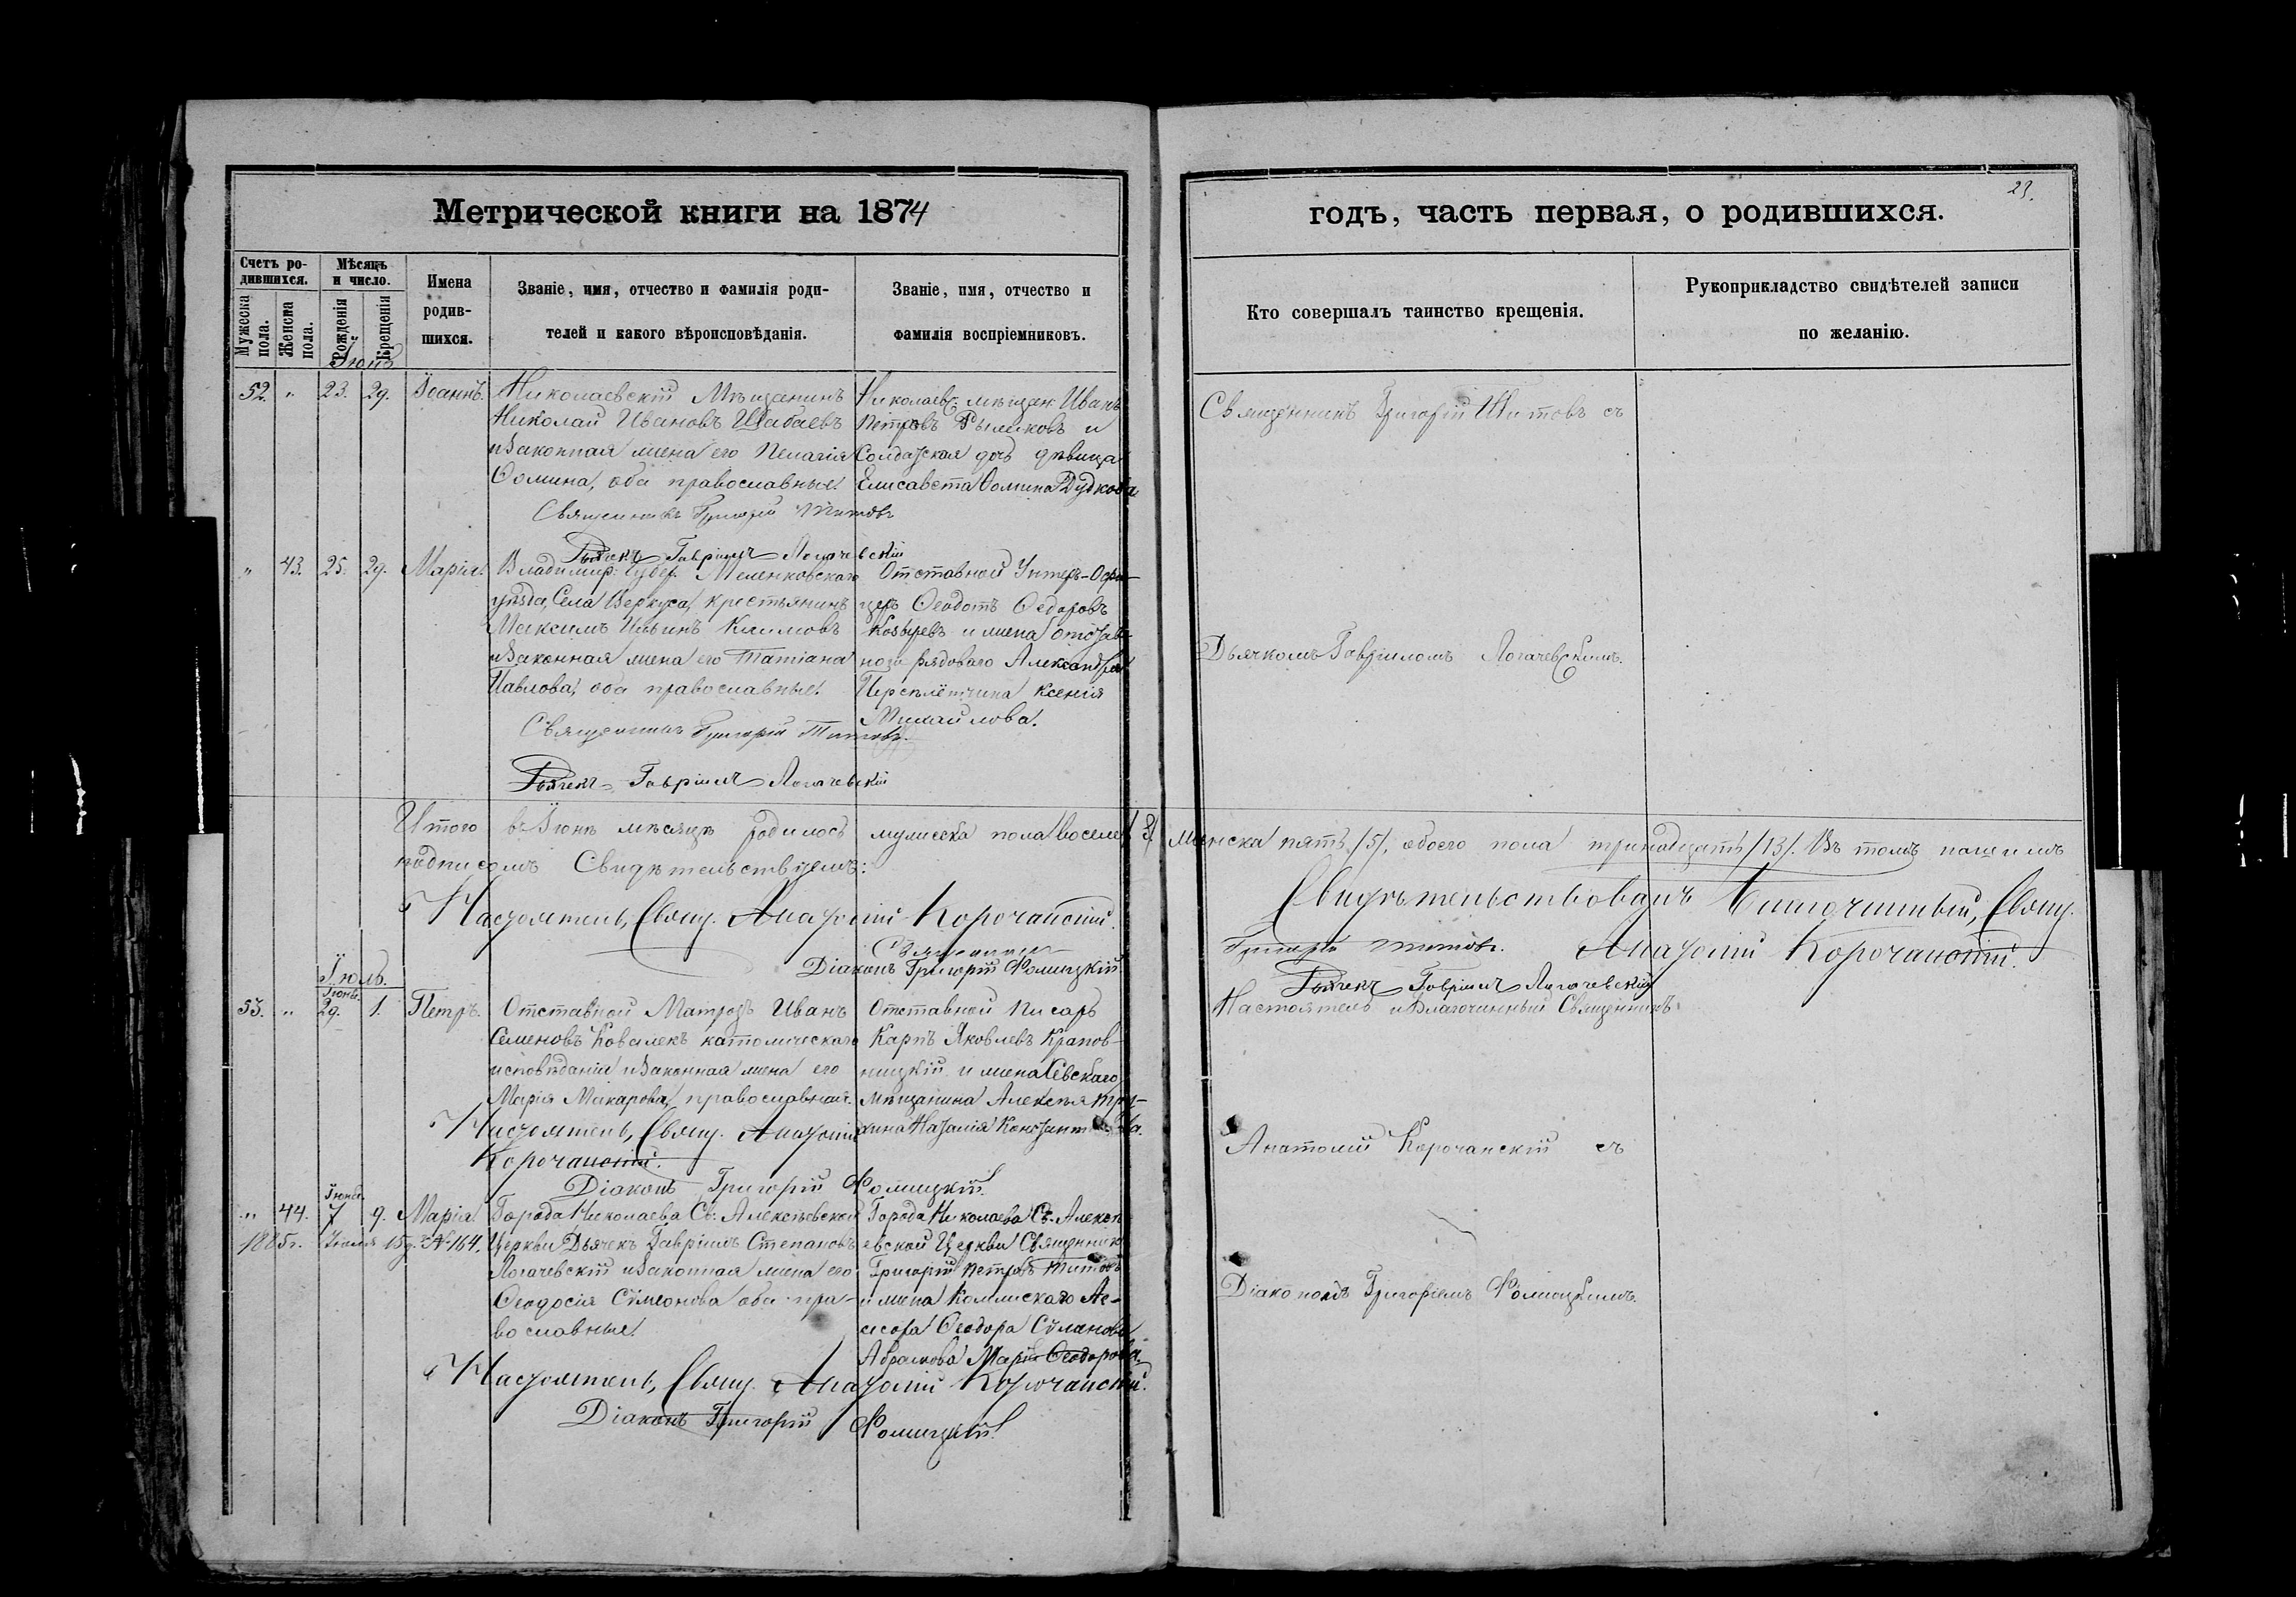 Метрической книги на 1874
Счетъ родившихся.
Мужеска пола.
Женска пола.
Мѣсяцъ и число.
Рожденія
Крещенія
Имена родившихся.
Званіе, имя, отчество и фамилія роди-
телей и какого вѣроисповѣданія.
Званіе, имя, отчество и
фамилія воспріемниковъ.
Іюнь
52. " 23. 29. Іоаннъ.
Николаевскій Мѣщанинъ
Николай Ивановъ Шабаевъ
и Законная жена его Пелагія
Ѳомина, оба православные.
Николаевс: мѣщан: Иванъ
Петровъ Рыжковъ и
Солдатская дочь дѣвица
Елисавета Ѳомина Дудкова
Священникъ Григорій Титовъ
Дьячекъ Гавріилъ Логачевскій
" 43. 25. 29. Марія.
Владимір: Губер. Меленковскаго
уѣзда, Села Верхуса, крестьянинъ
Максимъ Ильинъ Климовъ
и Законная жена его Татіана
Павлова, оба православные.
Отставной Унтеръ-Офи-
церъ Ѳеодотъ Ѳедоровъ
Козыревъ и жена отстав-
наго рядоваго Александра
Переплётчина Ксенія
Михайлова.
Священникъ Григорій Титовъ.
Дьячекъ Гавріилъ Логачевскій
Итого въ Іюнѣ мѣсяцѣ родилось мужеска пола восемь /8/
подписомъ Свидѣтельствуемъ:
Настоятель, Свящ. Анатолій Корочанскій.
Священникъ
Діаконъ Григорій Фомицкій.
Іюль.
53. " Іюнь. 29. 1. Петръ.
Отставной Матрозъ Иванъ
Семеновъ Ковалекъ католическаго
исповѣданія и Законная жена его
Марія Макарова, православная.
Отставной Писарь
Карпъ Яковлевъ Крапов-
ницкій и жена Сѣвскаго
мѣщанина Алексѣя Тру-
хина Наталія Константинова.
Настоятель, Свящ. Анатолій
Корочанскій.
Діаконъ Григорій Фомицкій.
" 44. Іюль 7 9. Марія.
1885 г. Іюля 15 д. № 164.
Города Николаева Св: Алексѣевской
Церкви Дьячекъ Гавріилъ Степановъ
Логачевскій и Законная жена его
Ѳеодосія Сѵмеонова оба пра-
вославные.
Города Николаева Св. Алексѣ-
евской Церкви Священникъ
Григорій Петровъ Титовъ
и жена Коллежскаго Ас-
сесора Ѳеодора Сѵланова
Абрамова Марія Ѳеодорова.
Настоятель, Свящ. Анатолій Корочанскій.
Діаконъ Григорій Фомицкій.
23.
годъ, часть первая, о родившихся.
Кто совершалъ таинство крещенія.
Рукоприкладство свидѣтелей записи
по желанію.
Священникъ Григорій Титовъ съ
Дьячкомъ Гавріиломъ Логачевскимъ.
женска пять /5/. обоего пола тринадцать /13/. Въ томъ нашимъ
Свидѣтельствовалъ Благочинный, Свящ.
Григорій Титовъ. Анатолій Корочанскій.
Дьячекъ Гавріилъ Логачевскій
Настоятель и Благочинный Священникъ
Анатолій Корочанскій съ
Діакономъ Григоріемъ Фомицкимъ.